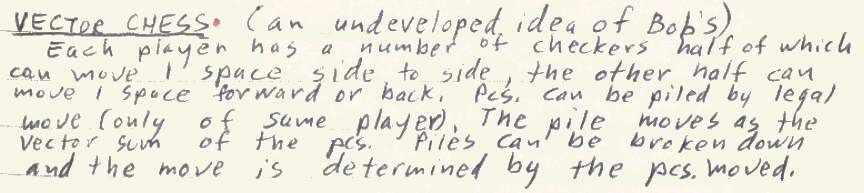 VECTOR CHESS. (an undeveloped idea of Bob's)
Each player has a number of checkers half of which
can move 1 space side to side, the other half can
move 1 space forward or back. Pcs. can be piled by legal
move (only of same player). The pile moves as the
vector sum of the pcs. Piles can be broken down
and the move is determined by the pcs. moved.